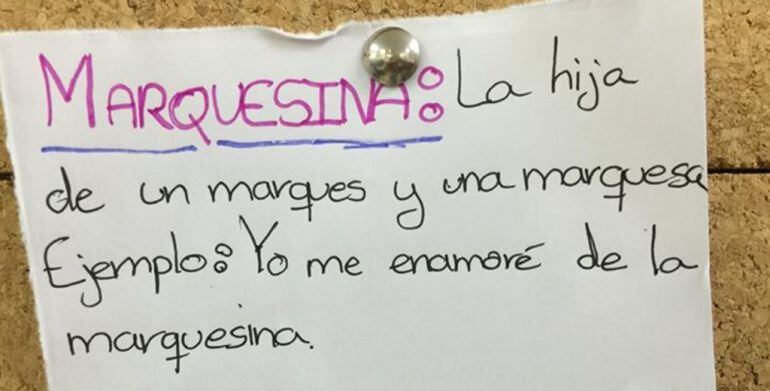 MARQUESINA: La hija
de un marques y una marquesa
Ejemplo: Yo me enamoré de la
marquesina.